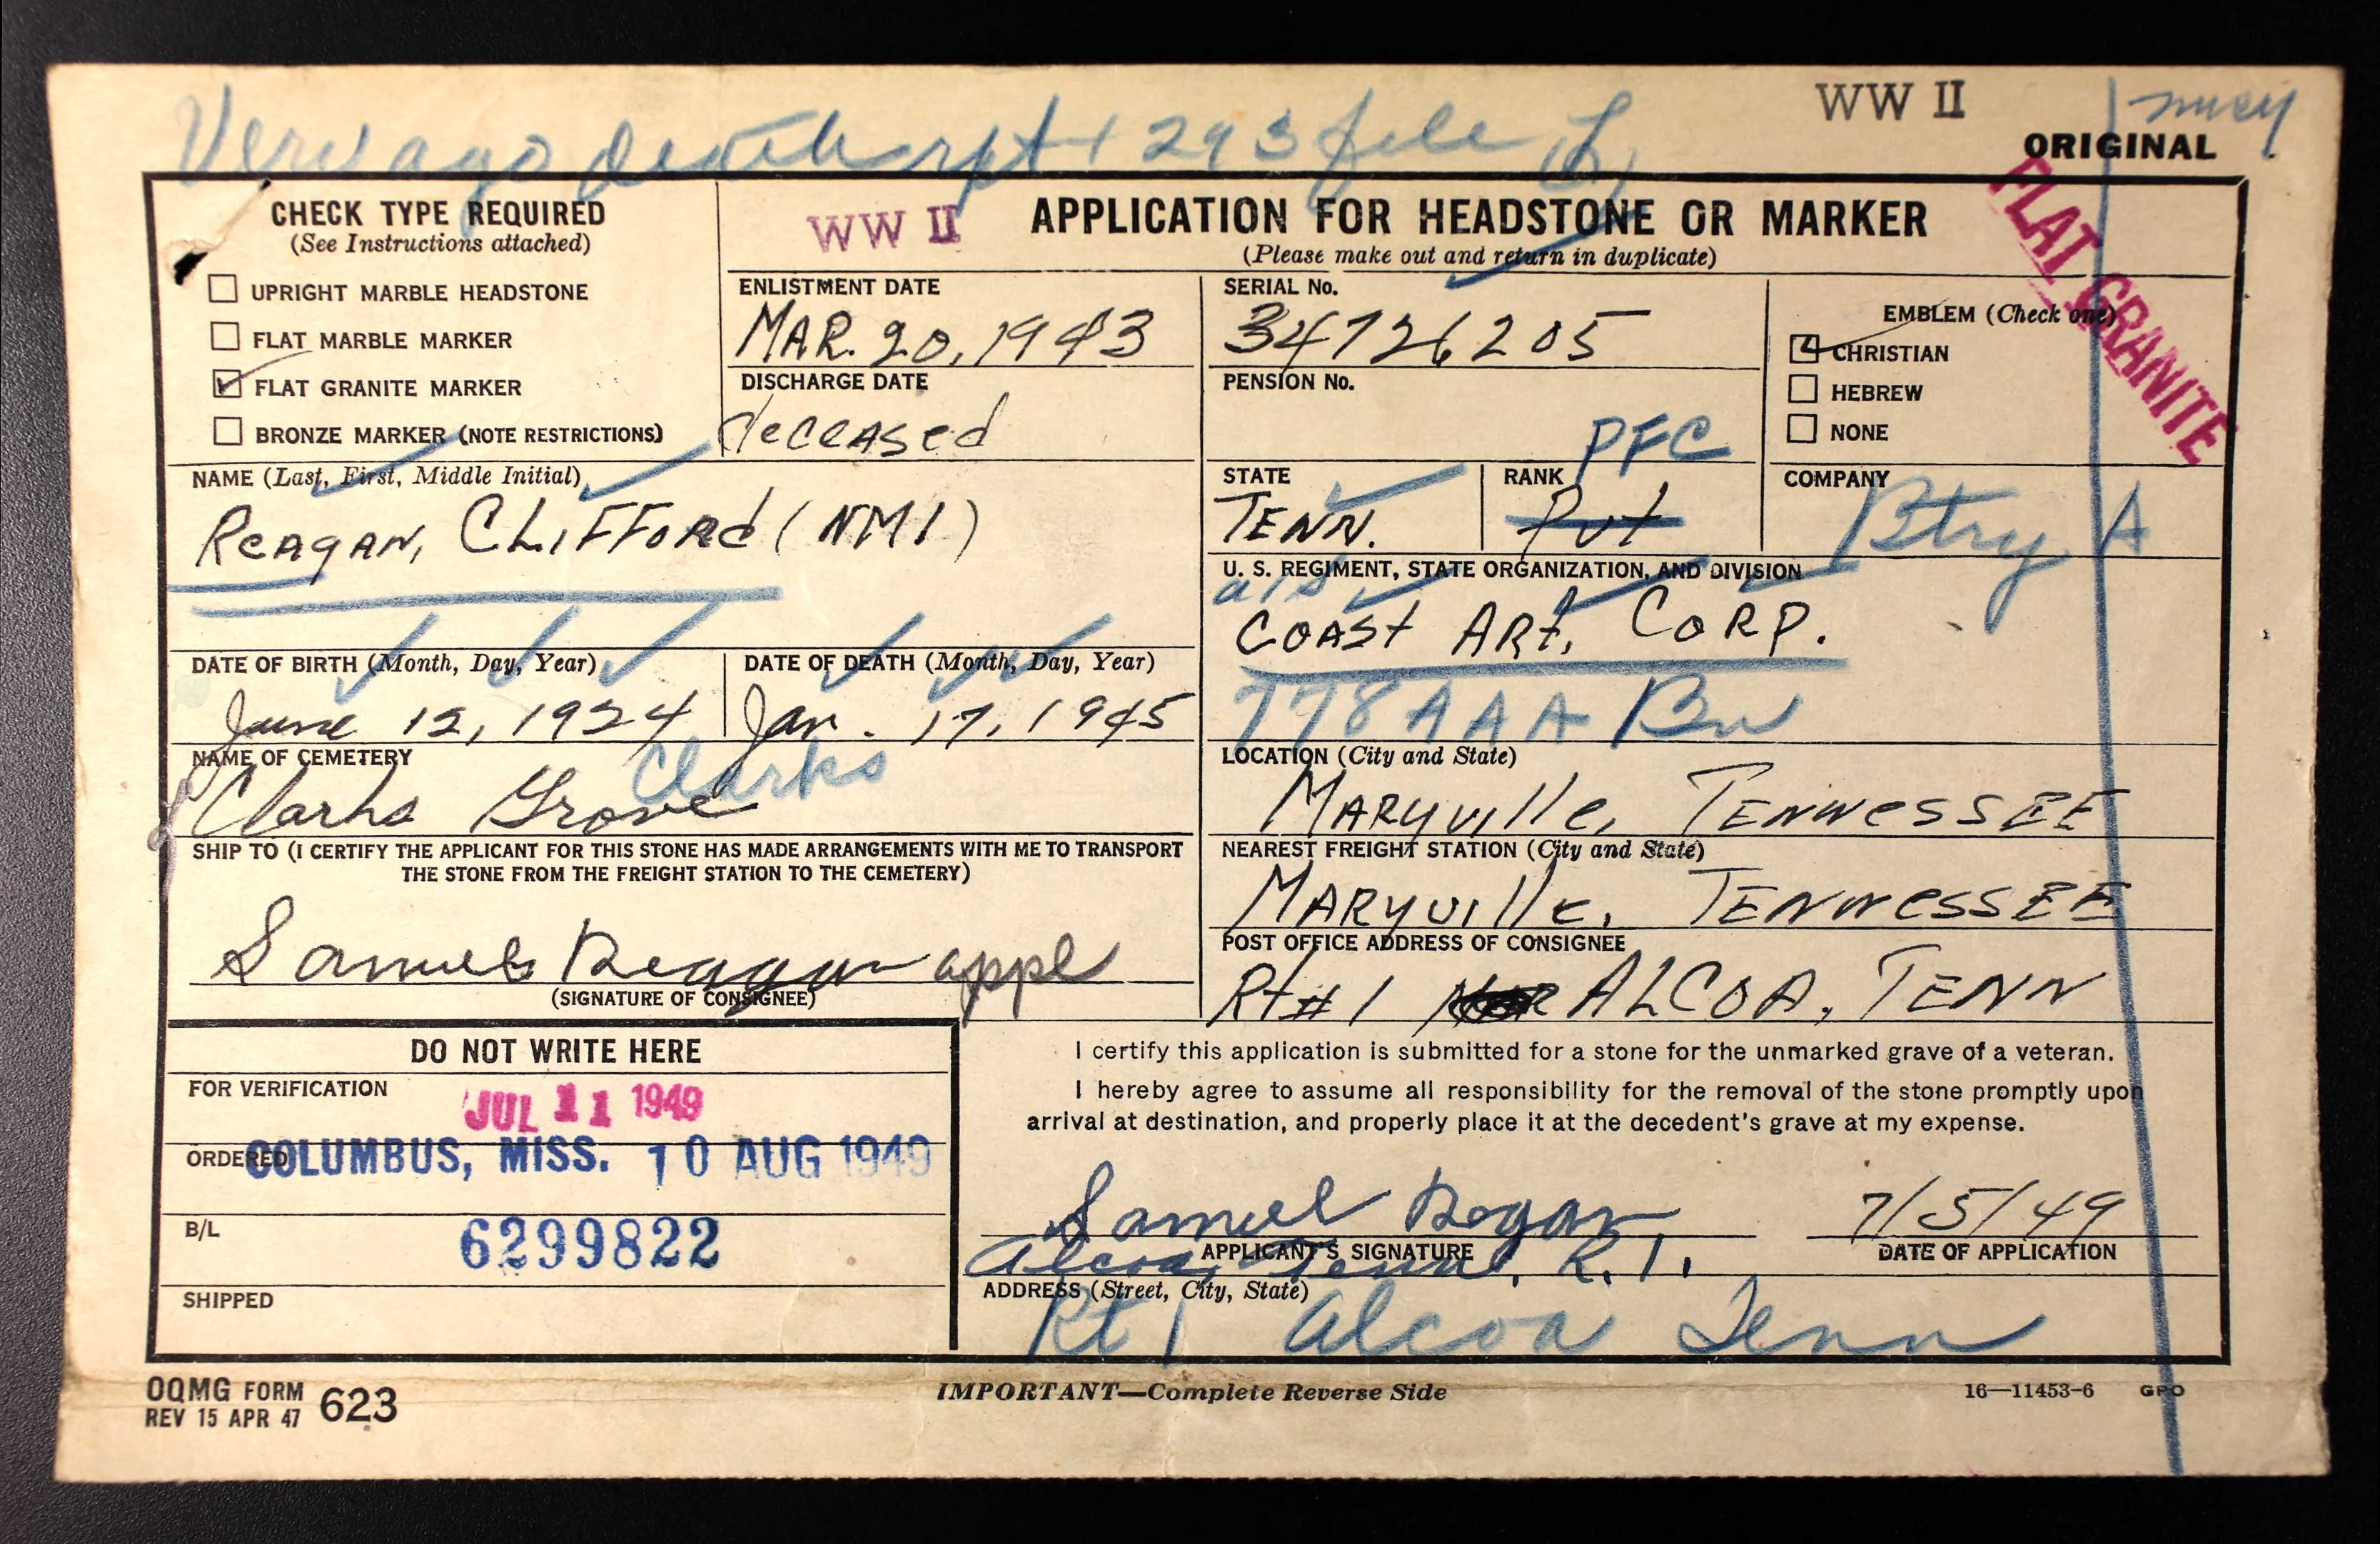 WW II
Verif ago death rpt + 293 file
ORIGINAL
CHECK TYPE REQUIRED
(See Instructions attached)
UPRIGHT MARBLE HEADSTONE
FLAT MARBLE MARKER
FLAT GRANITE MARKER
BRONZE MARKER (NOTE RESTRICTIONS)
WW II
APPLICATION FOR HEADSTONE OR MARKER
(Please make out and return in duplicate)
FLAT GRANITE
ENLISTMENT DATE
MAR. 20, 1943
SERIAL No.
34726205
EMBLEM (Check one)
CHRISTIAN
HEBREW
NONE
DISCHARGE DATE
deceased
PENSION No.
NAME (Last, First, Middle Initial)
Reagan, Clifford (NMI)
STATE
TENN.
RANK
PFC
Pvt
COMPANY
Btry A
U. S. REGIMENT, STATE ORGANIZATION, AND DIVISION
COAST ARt. CORP.
778 AAA Bn
DATE OF BIRTH (Month, Day, Year)
June 12, 1924
DATE OF DEATH (Month, Day, Year)
Jan. 17, 1945
NAME OF CEMETERY
Clarks
Clarks Grove
LOCATION (City and State)
MARYville, TENNESSEE
SHIP TO (I CERTIFY THE APPLICANT FOR THIS STONE HAS MADE ARRANGEMENTS WITH ME TO TRANSPORT
THE STONE FROM THE FREIGHT STATION TO THE CEMETERY)
NEAREST FREIGHT STATION (City and State)
MARYville, TENNESSEE
Samuel Reagan appl
(SIGNATURE OF CONSIGNEE)
POST OFFICE ADDRESS OF CONSIGNEE
Rt #1 ALCOA, TENN
DO NOT WRITE HERE
FOR VERIFICATION
JUL 11 1949
ORDERED
COLUMBUS, MISS. 10 AUG 1949
B/L
6299822
SHIPPED
I certify this application is submitted for a stone for the unmarked grave of a veteran.
I hereby agree to assume all responsibility for the removal of the stone promptly upon
arrival at destination, and properly place it at the decedent's grave at my expense.
Samuel Regan
7/5/49
APPLICANT'S SIGNATURE
DATE OF APPLICATION
Alcoa, Tenn, R. 1.
ADDRESS (Street, City, State)
Rt 1 Alcoa Tenn
OQMG FORM 623
REV 15 APR 47
IMPORTANT—Complete Reverse Side
16—11453-6 GPO